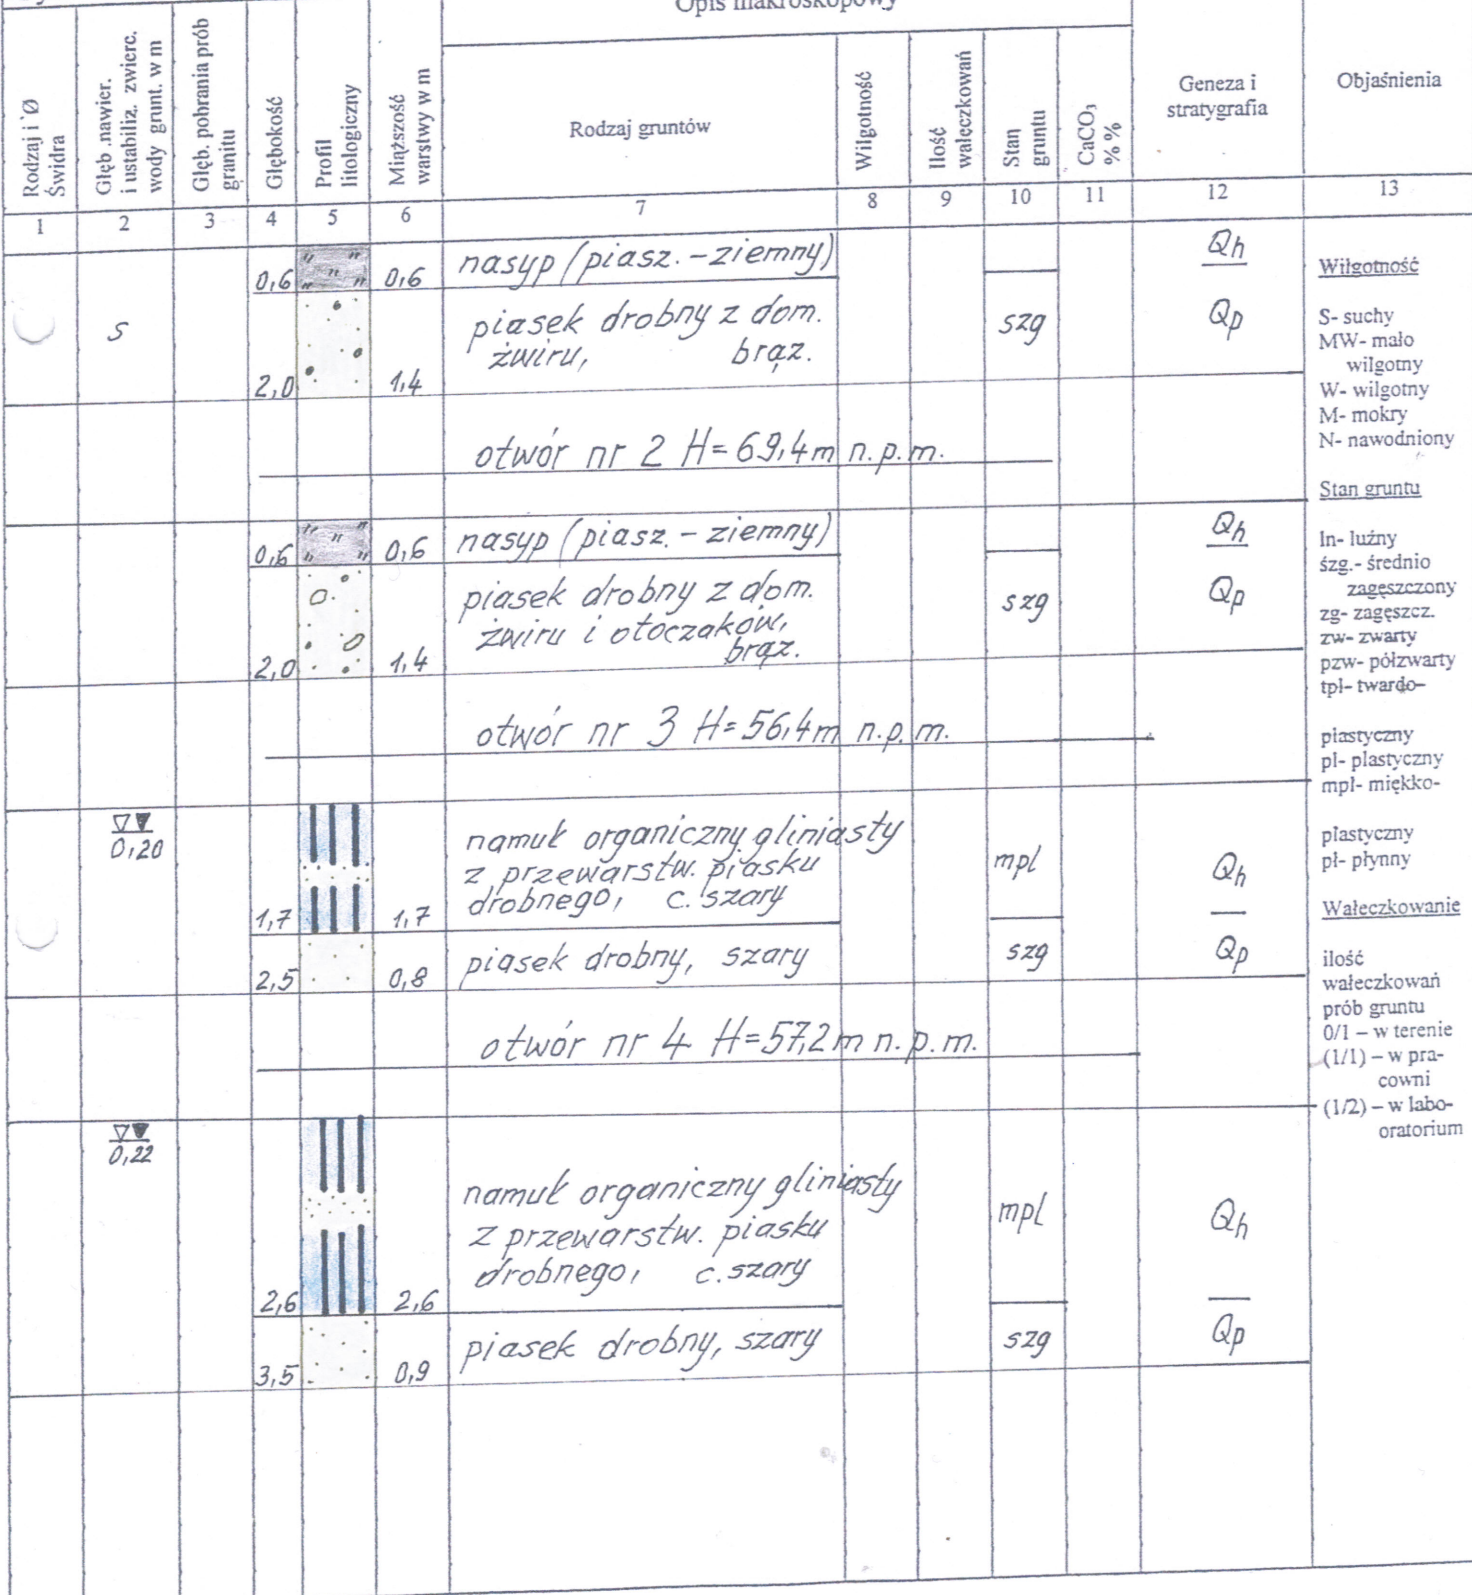 Opis makroskopowy
Rodzaj i Ø
Świdra
Głęb .nawier.
i ustabiliz. zwierc.
wody grunt. w m
Głęb. pobrania prób
granitu
Głębokość
Profil
litologiczny
Miąższość
warstwy w m
Rodzaj gruntów
Wilgotność
Ilość
wałeczkowań
Stan
gruntu
CaCO₃
% %
Geneza i
stratygrafia
Objaśnienia
1 2 3 4 5 6 7 8 9 10 11 12 13
nasyp (piasz. – ziemny)
0,6 0,6
Qh
S
piasek drobny z dom.
żwiru, brąz.
szg
Qp
2,0 1,4
otwór nr 2 H=69,4m n.p.m.
nasyp (piasz. – ziemny)
0,6 0,6
Qh
piasek drobny z dom.
żwiru i otoczaków,
brąz.
szg
Qp
2,0 1,4
otwór nr 3 H=56,4m n.p.m.
0,20
namuł organiczny gliniasty
z przewarstw. piasku
drobnego, c. szary
mpl
Qh
1,7 1,7
piasek drobny, szary
szg
Qp
2,5 0,8
otwór nr 4 H=57,2m n.p.m.
0,22
namuł organiczny gliniasty
z przewarstw. piasku
drobnego, c. szary
mpl
Qh
2,6 2,6
piasek drobny, szary
szg
Qp
3,5 0,9
Wilgotność
S- suchy
MW- mało
wilgotny
W- wilgotny
M- mokry
N- nawodniony
Stan gruntu
ln- luźny
śzg.- średnio
zagęszczony
zg- zagęszcz.
zw- zwarty
pzw- półzwarty
tpl- twardo-
plastyczny
pl- plastyczny
mpl- miękko-
plastyczny
pł- płynny
Wałeczkowanie
ilość
wałeczkowań
prób gruntu
0/1 – w terenie
(1/1) – w pra-
cowni
(1/2) – w labo-
oratorium